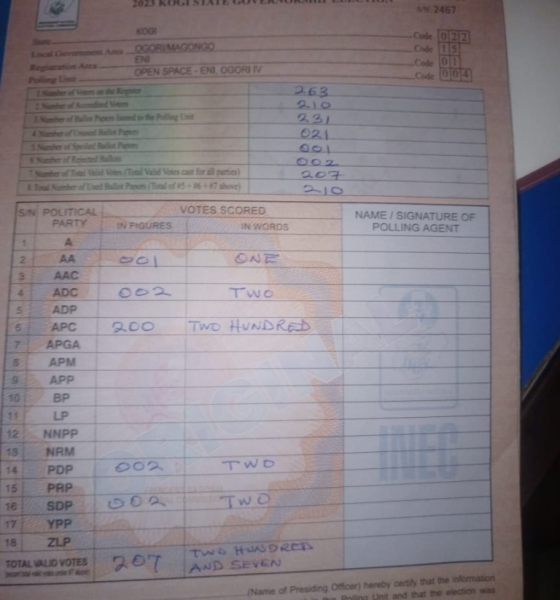 2023 KOGI STATE GOVERNORSHIP ELECTION
S/N. 2467
State KOGI Code 022
Local Government Area OGORI/MAGONGO Code 15
Registration Area ENI Code 01
Polling Unit OPEN SPACE - ENI, OGORI IV Code 004
1 Number of Voters on the Register 263
2 Number of Accredited Voters 210
3 Number of Ballot Papers Issued to the Polling Unit 231
4 Number of Unused Ballot Papers 021
5 Number of Spoiled Ballot Papers 001
6 Number of Rejected Ballots 002
7 Number of Total Valid Votes (Total Valid Votes cast for all parties) 207
8 Total Number of Used Ballot Papers (Total of #5 + #6 + #7 above) 210
S/N POLITICAL PARTY VOTES SCORED NAME / SIGNATURE OF POLLING AGENT
IN FIGURES IN WORDS
1 A
2 AA 001 ONE
3 AAC
4 ADC 002 TWO
5 ADP
6 APC 200 TWO HUNDRED
7 APGA
8 APM
9 APP
10 BP
11 LP
12 NNPP
13 NRM
14 PDP 002 TWO
15 PRP
16 SDP 002 TWO
17 YPP
18 ZLP
TOTAL VALID VOTES 207 TWO HUNDRED AND SEVEN
ORIGINAL
INEC
(Name of Presiding Officer) hereby certify that the information
in this Polling Unit and that the election was